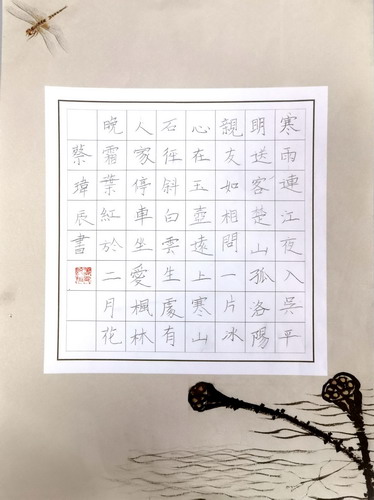 寒雨連江夜入吳平
明送客楚山孤洛陽
親友如相問一片冰
心在玉壺遠上寒山
石徑斜白雲生處有
人家停車坐愛楓林
晚霜葉紅於二月花
蔡瑋辰書